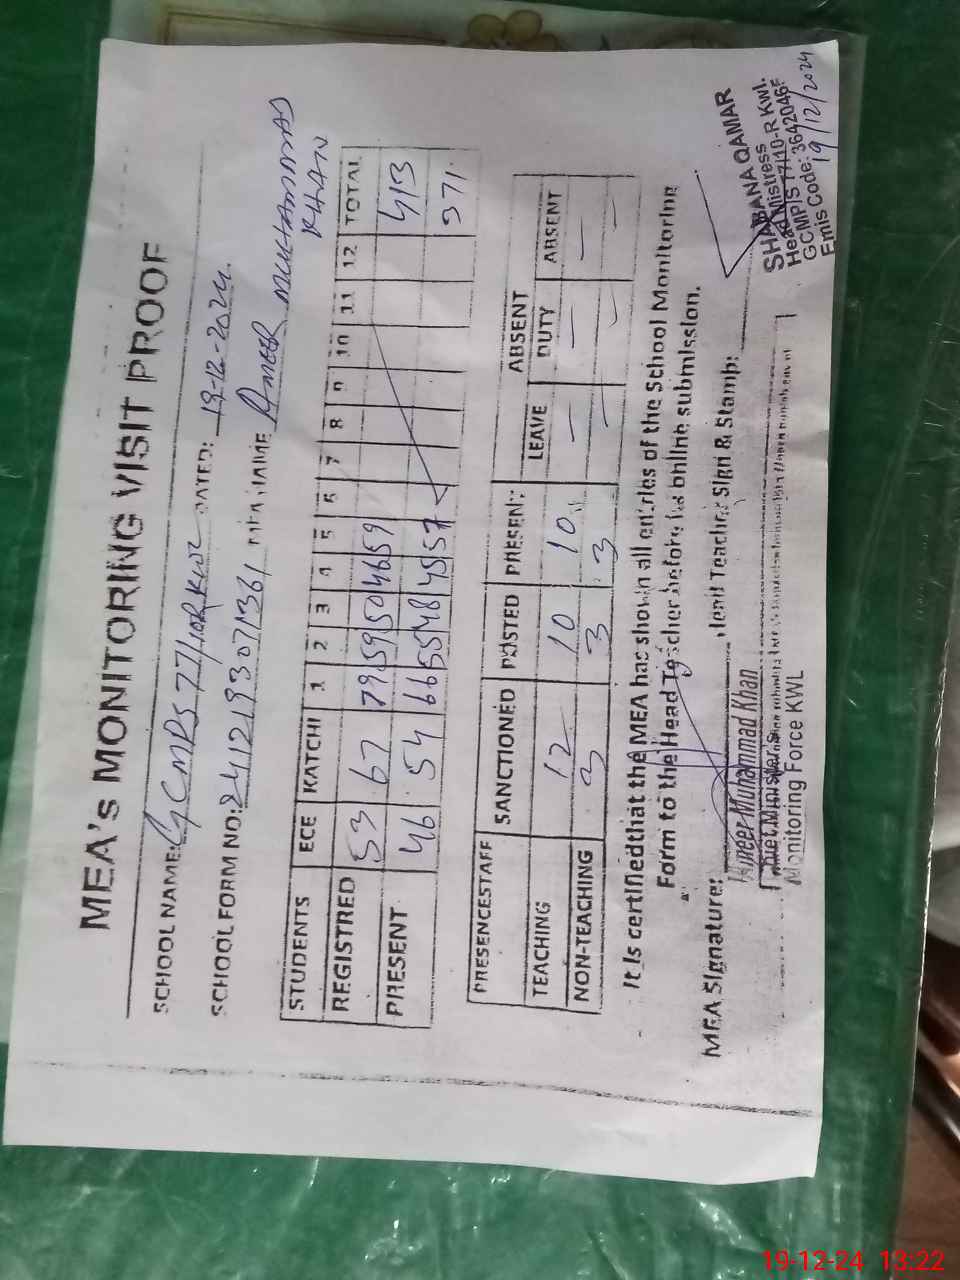 MEA's MONITORING VISIT PROOF
SCHOOL NAME: GCMPS 77/10R KWL DATED: 19-12-2024
SCHOOL FORM NO: 2412193071361 MEA NAME AMEER MUHAMMAD
KHAN
STUDENTS ECE KATCHI 1 2 3 4 5 6 7 8 9 10 11 12 TOTAL
REGISTRED 53 67 79 59 50 46 59 413
PRESENT 46 54 66 55 48 45 57 371
ABSENT
PRESENCESTAFF SANCTIONED POSTED PRESENT LEAVE DUTY ABSENT
TEACHING 12 10 10 — — —
NON-TEACHING 3 3 3 — — —
It is certifiedthat the MEA has shown all entries of the School Monitoring
Form to the Head Teacher before its online submission.
MEA Signature: Head Teacher Sign & Stamp:
Ameer Muhammad Khan
Chief Minister's
Monitoring Force KWL
SHABANA QAMAR
Head Mistress
GCMP/S 77/10-R Kwl.
Emis Code: 36420461
19/12/2024
19-12-24 13:22